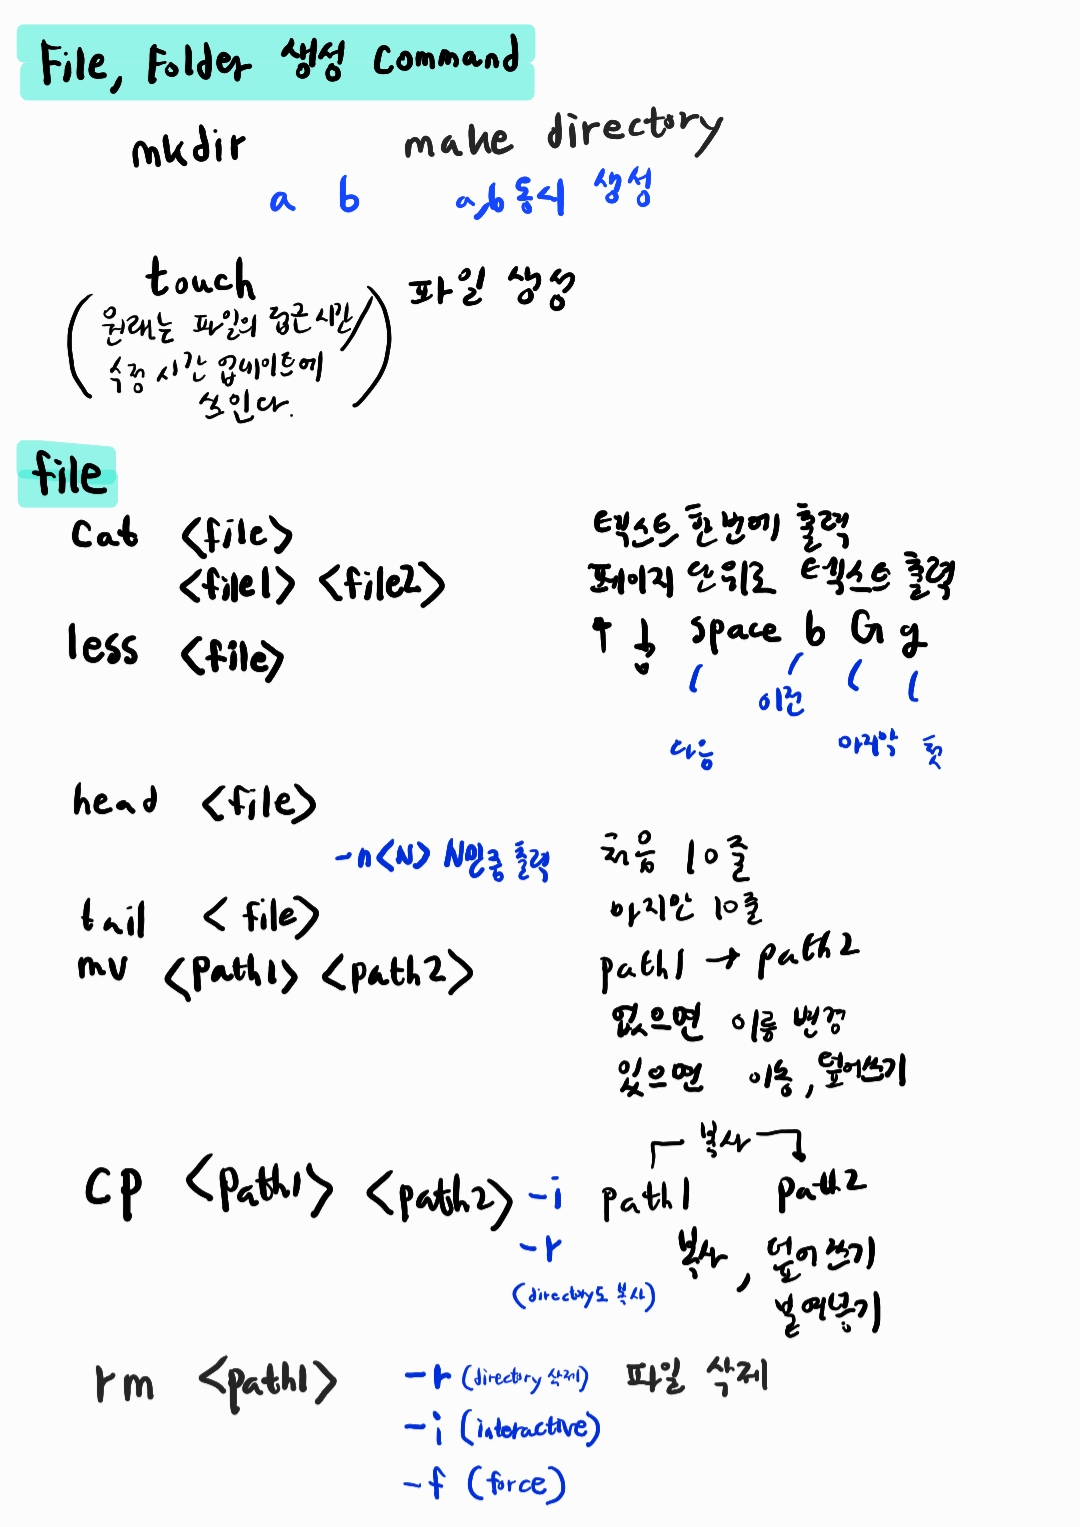 File, Folder 생성 Command
mkdir make directory
a b a,b 동시 생성
touch 파일 생성
(원래는 파일의 접근 시간/
수정 시간 업데이트에
쓰인다.)
file
cat <file> 텍스트 한번에 출력
<file1> <file2> 페이지 단위로 텍스트 출력
less <file> ↑ ↓ space b G g
이전
다음 마지막 첫
head <file>
-n<N> N만큼 출력 처음 10줄
tail <file> 마지막 10줄
mv <path1> <path2> path1 → path2
없으면 이름 변경
있으면 이동, 덮어쓰기
복사
cp <path1> <path2> -i path1 path2
-r 복사, 덮어쓰기
(directory도 복사) 붙여넣기
rm <path1> -r (directory 삭제) 파일 삭제
-i (interactive)
-f (force)